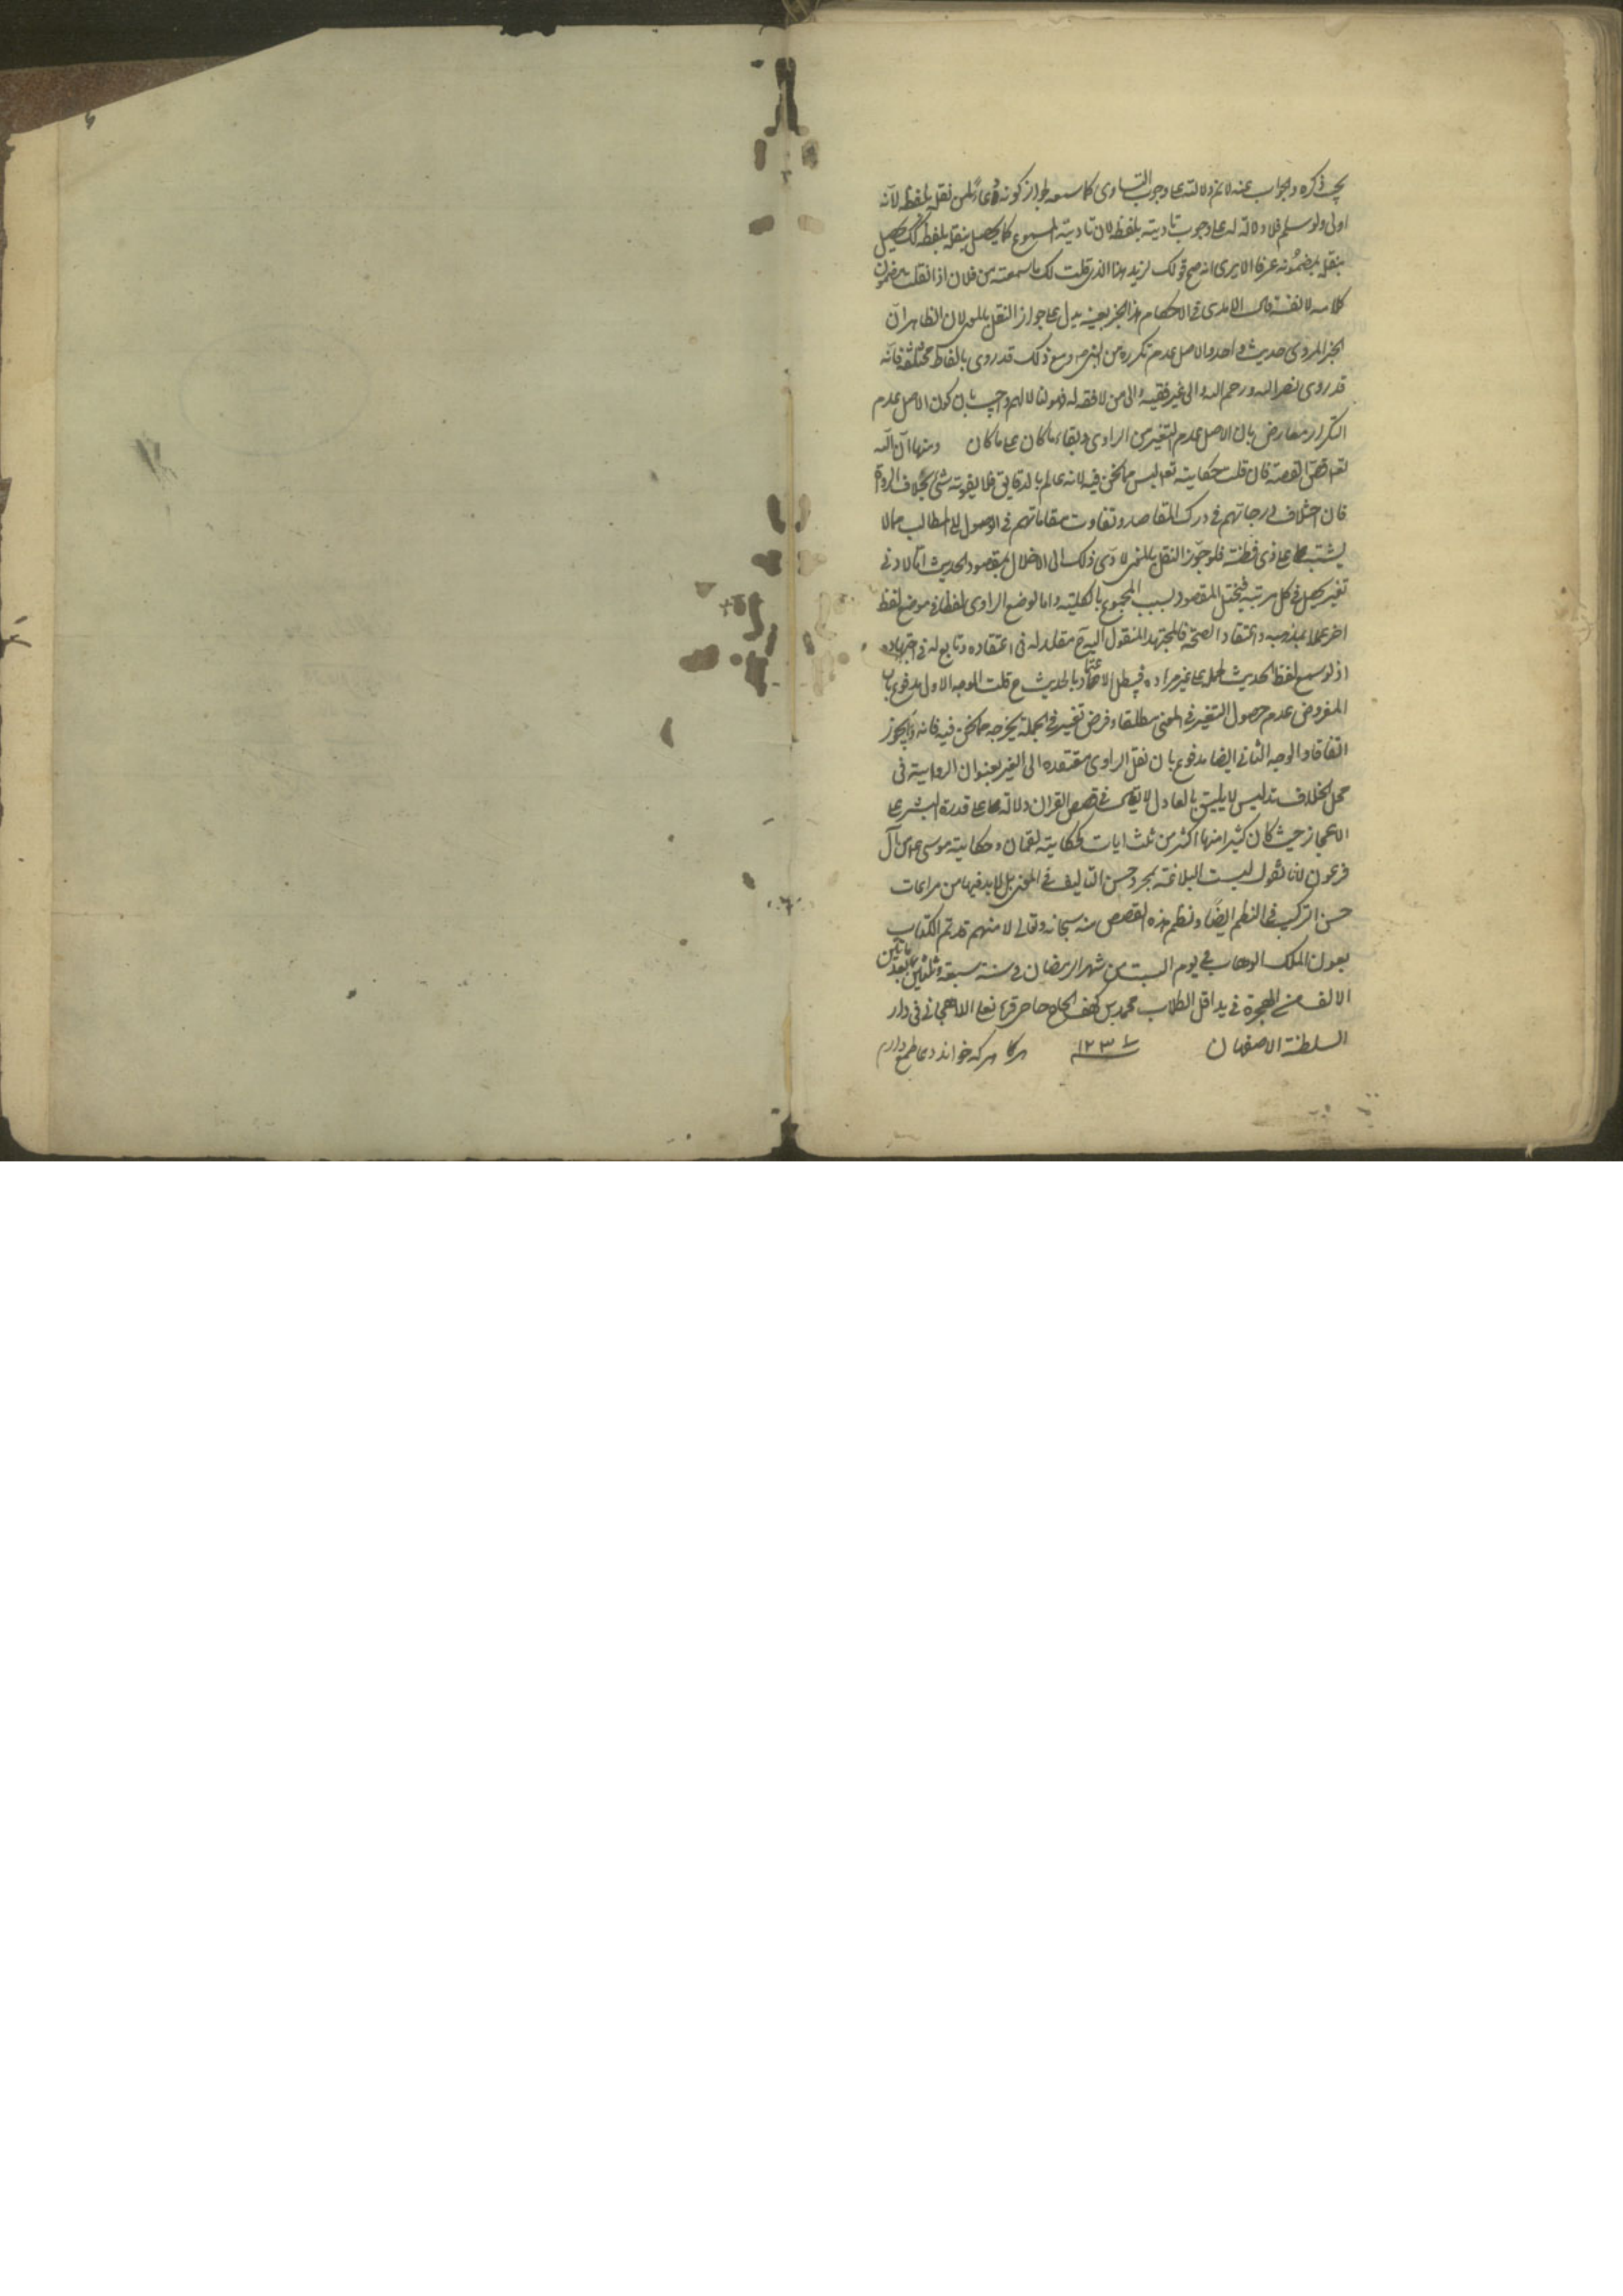 يجب ذكره والجواب عنه لا نم دلالته على وجوب التساوى كما سمعه لجواز كونه دعاءً لمن نقله بلفظه لأنه
اولى ولو سلم فلا دلالة له على وجوب تاديته بلفظه لان تادية المسموع كما يحصل بنقله بلفظه كك يحصل
بنقله بمضمونه عرفا الا يرى انه صح قولك لزيد هذا الذى قلت لك ما سمعته من فلان اذا نقلت مضمون
كلامه لا لفظه قال الامدى فى الاحكام هذا الخبر بعينه يدل على جواز النقل بالمعنى لان الظاهر انّ
الخبر المروى حديث واحد والاصل عدم تكرره من النبى ص ومع ذلك قد روى بالفاظ مختلفة فانه
قد روى نضر الله ورحم الله والى غير فقيه والى من لا فقه له فهو لنا لا لهم واجيب بان كون الاصل عدم
التكرار معارض بان الاصل عدم التغير من الراوى وبقاء ما كان على ما كان ومنها انّ الله
تعا قصّ القصة فان قلت حكايته تعا ليس مما نحن فيه لانه عالم بالدقايق فلا يفوته شئ بخلاف الرواة
فان اختلاف درجاتهم فى درك المقاصد وتفاوت مقاماتهم فى الوصول الى المطالب مما لا
يشتبه على ذى فطنة فلو جوّز النقل بالمعنى لادّى ذلك الى الاخلال بمقصود الحديث اما لادنى
تغير يحصل فى كل مرتبة فيختل المقصود بسبب المجموع بالكلية واما لوضع الراوى لفظا فى موضع لفظ
اخر عملا بمذهبه واعتقاد الصحة فالمجتهد المنقول اليه ح مقلد له فى اعتقاده وتابع له فى اجتهاده
اذ لو سمع لفظ الحديث لحمله على غير مراده فيبطل الاعتماد بالحديث ح قلت الوجه الاول مدفوع بان
المفروض عدم حصول التغير فى المعنى مطلقا وفرض تغير فى الجملة يخرجه مما نحن فيه فانه لا يجوز
اتفاقا والوجه الثانى ايضا مدفوع بان نقل الراوى معتقده الى الغير بعنوان الرواية فى
محل الخلاف تدليس لا يليق بالعادل لا يقال فى قصص القران دلالة على قدرة البشر على
الاعجاز حيث كان كثيرا منها اكثر من ثلث ايات كحكاية لقمان وحكاية موسى مع آل
فرعون لانا نقول ليست البلاغة بمجرد حسن التاليف فى المعنى بل لا بد فيها من مراعات
حسن التركيب فى النظم ايضًا ونظم هذه القصص منه سبحانه وتعالى لا منهم قد تم الكتاب
بعون الملك الوهاب فى يوم السبت من شهر الرمضان فى سنة سبعة وثلثين بعد ماتين
الالف من الهجرة فى يد اقل الطلاب محمد بن
السلطنة الاصفهان ١٢٣٧ هر که خواند دعا طمع دارم